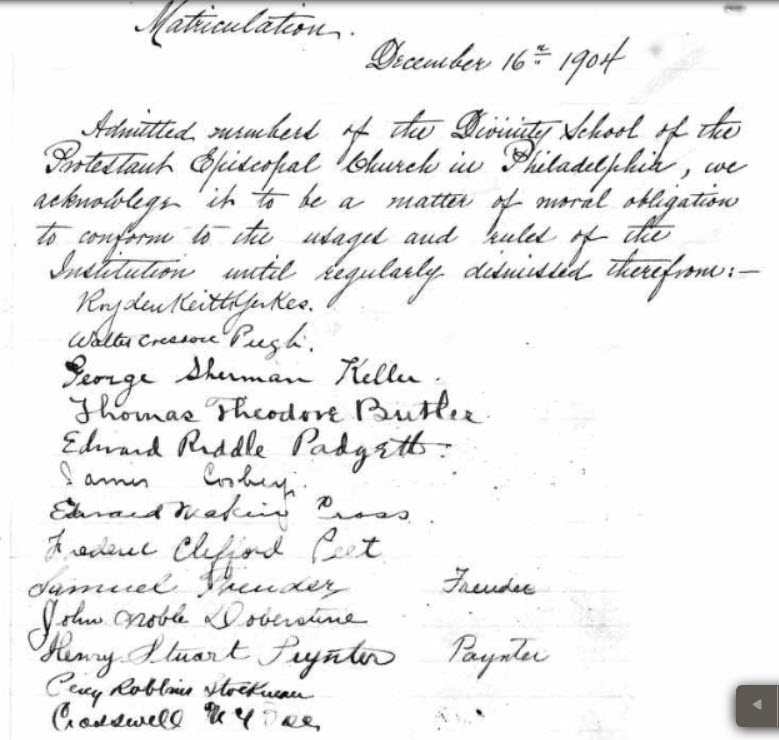 Matriculation.
December 16th 1904
Admitted members of the Divinity School of the
Protestant Episcopal Church in Philadelphia, we
acknowlege it to be a matter of moral obligation
to conform to the usages and rules of the
Institution until regularly dismissed therefrom:—
Royden Keith Yerkes.
Walter Cresson Pugh.
George Sherman Keller.
Thomas Theodore Butler.
Edward Riddle Padgett.
James Cosbey.
Edward Makin Cross.
Frederic Clifford Peet
Samuel Freuder Freuder
John Noble Doberstine
Henry Stuart Peynter Paynter
Percy Robbins Stockman
Crosswell